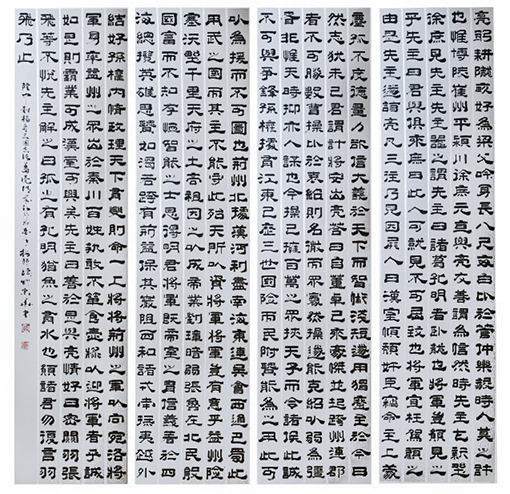 亮躬耕隴畝好為梁父吟身長八尺每自比於管仲樂毅時人莫之許
也惟博陵崔州平潁川徐庶元直與亮友善謂為信然時先主屯新野
徐庶見先主先主器之謂先主曰諸葛孔明者臥龍也將軍豈願見之
乎先主曰君與俱來庶曰此人可就見不可屈致也將軍宜枉駕顧之
由是先主遂詣亮凡三往乃見因屏人曰漢室傾頹姦臣竊命主上蒙
塵孤不度德量力欲信大義於天下而智術淺短遂用猖蹶至於今日
然志猶未已君謂計將安出亮答曰自董卓已來豪傑並起跨州連郡
者不可勝數曹操比於袁紹則名微而眾寡然操遂能克紹以弱為強
者非惟天時抑亦人謀也今操已擁百萬之眾挾天子而令諸侯此誠
不可與爭鋒孫權據有江東已歷三世國險而民附賢能為之用此可
以為援而不可圖也荊州北據漢沔利盡南海東連吳會西通巴蜀此
用武之國而其主不能守此殆天所以資將軍將軍豈有意乎益州險
塞沃野千里天府之土高祖因之以成帝業劉璋闇弱張魯在北民殷
國富而不知存恤智能之士思得明君將軍既帝室之胄信義著於四
海總攬英雄思賢如渴若跨有荊益保其巖阻西和諸戎南撫夷越外
結好孫權內修政理天下有變則命一上將將荊州之軍以向宛洛將
軍身率益州之眾出於秦川百姓孰敢不簞食壺漿以迎將軍者乎誠
如是則霸業可成漢室可興矣先主曰善於是與亮情好日密關羽張
飛等不悅先主解之曰孤之有孔明猶魚之有水也願諸君勿復言羽
飛乃止